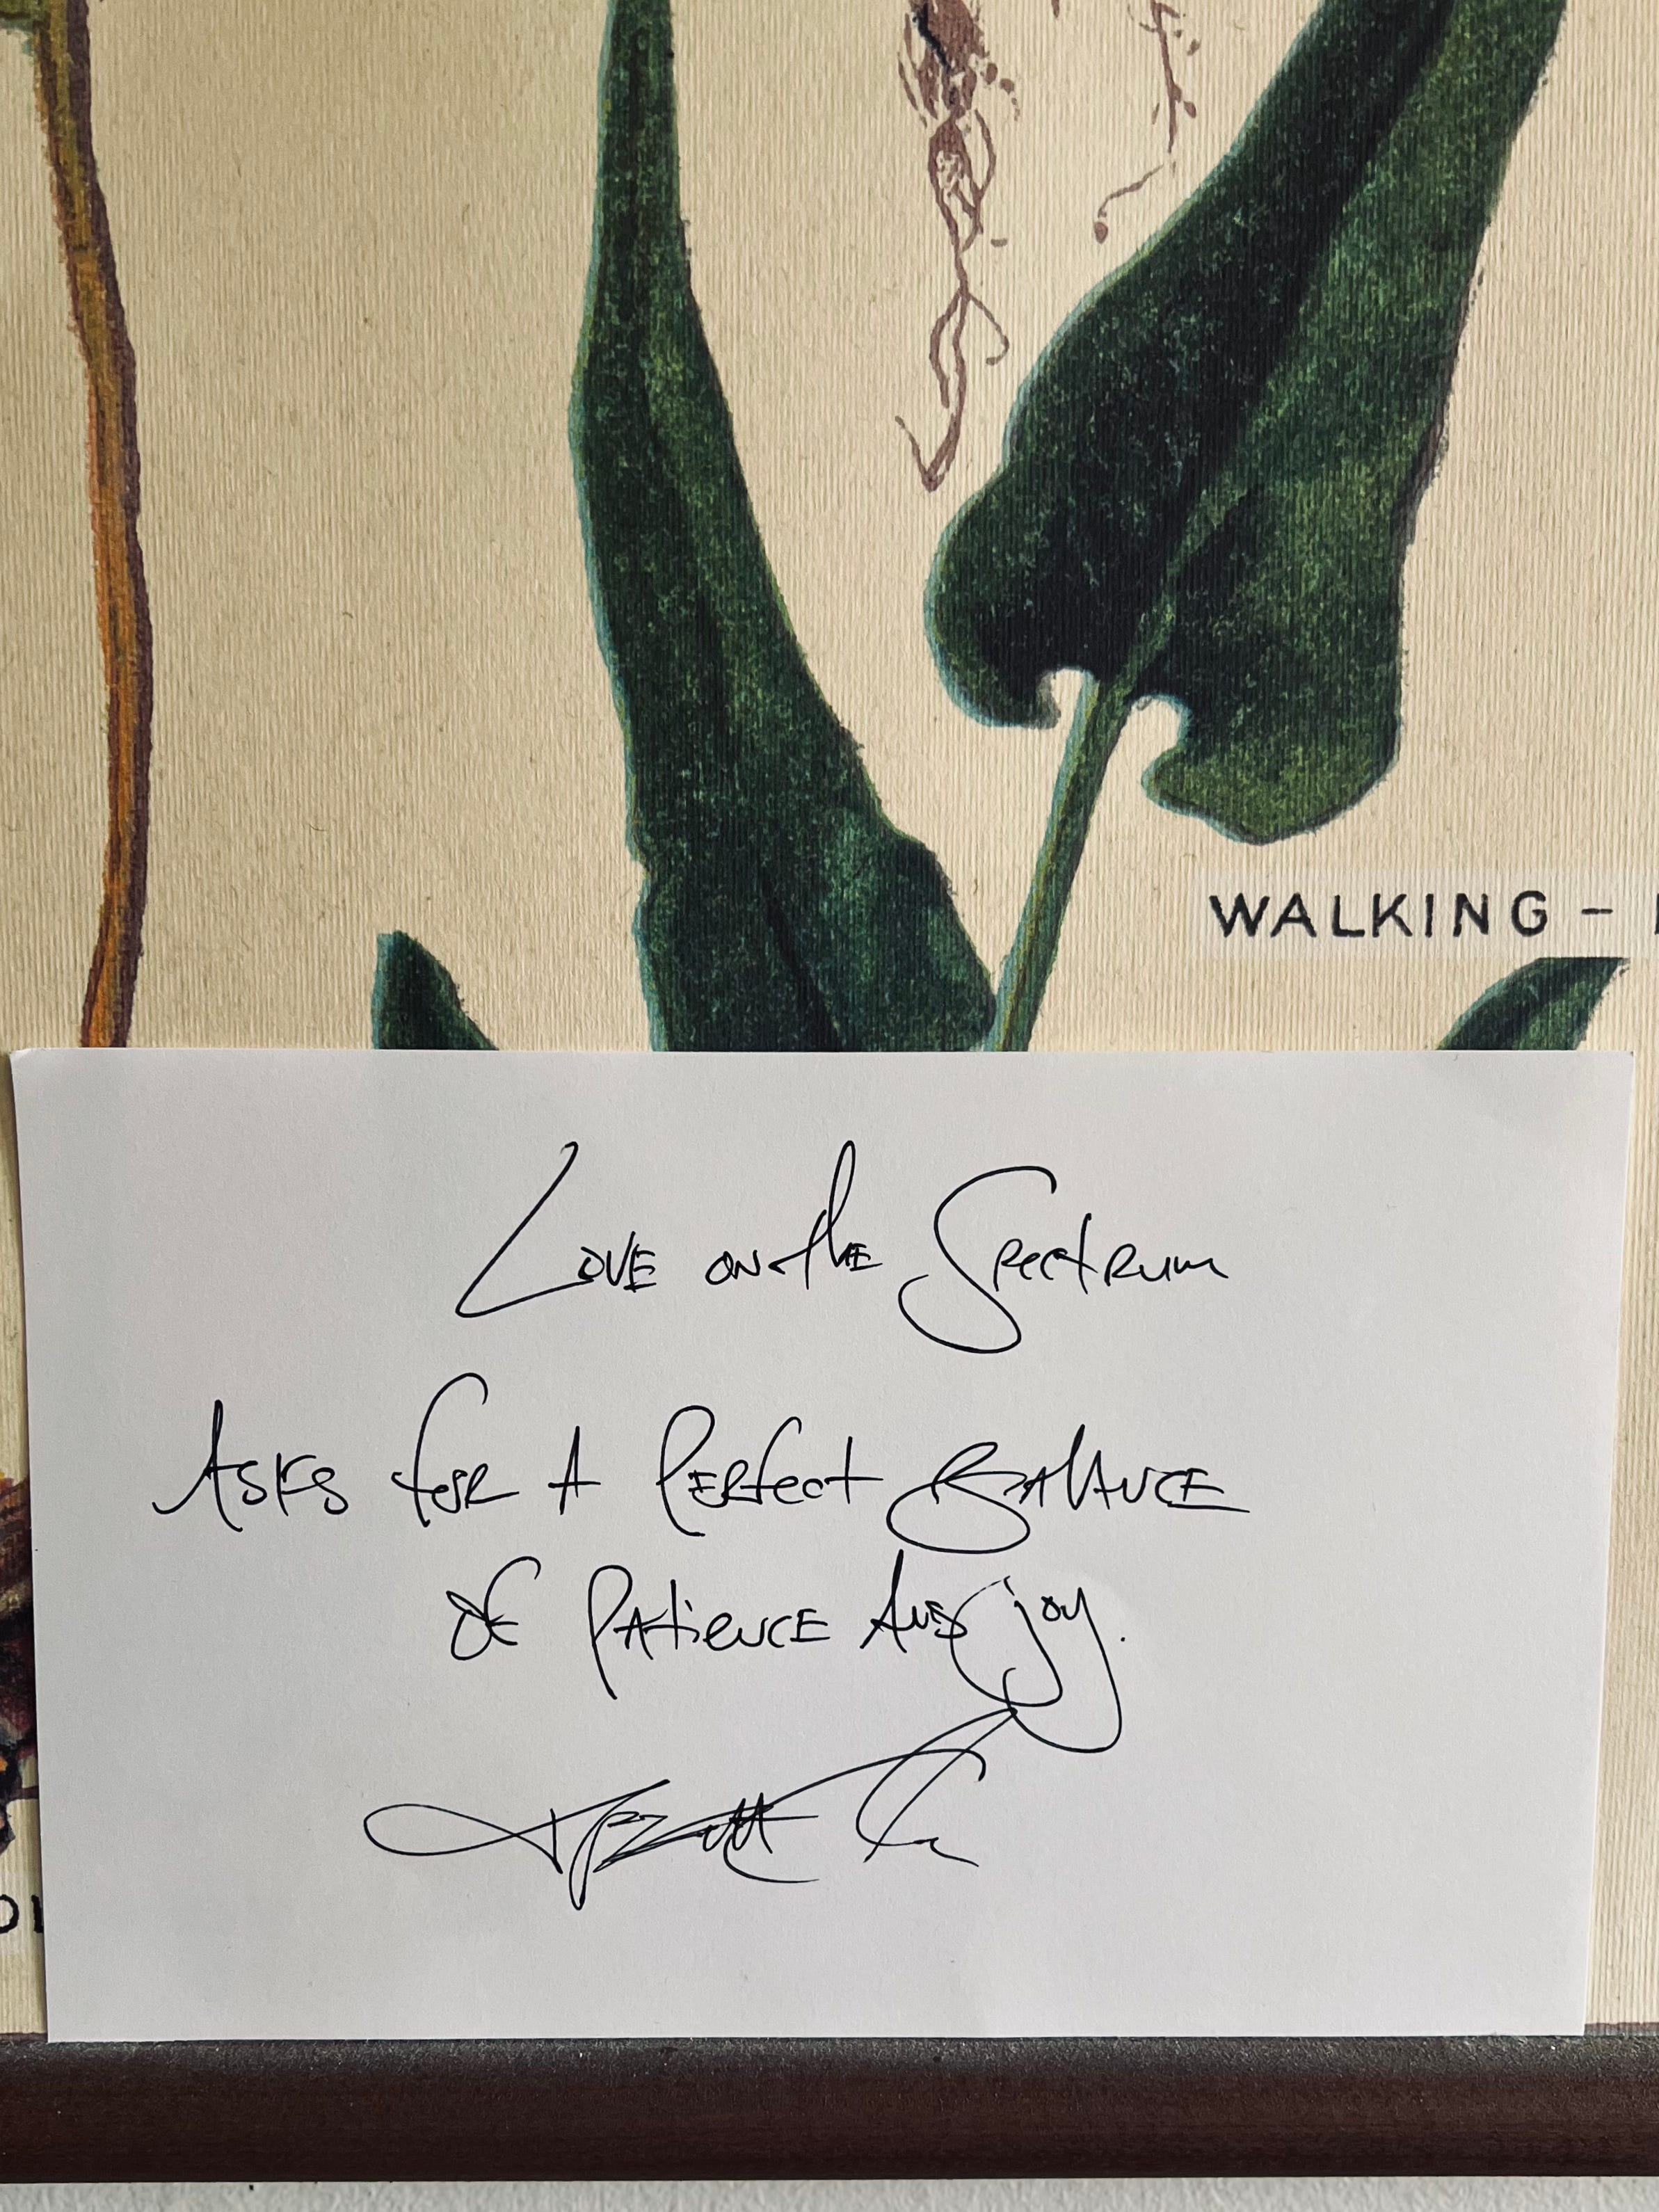 WALKING -
Love on the Spectrum
Asks for A Perfect Balance
of Patience And joy.